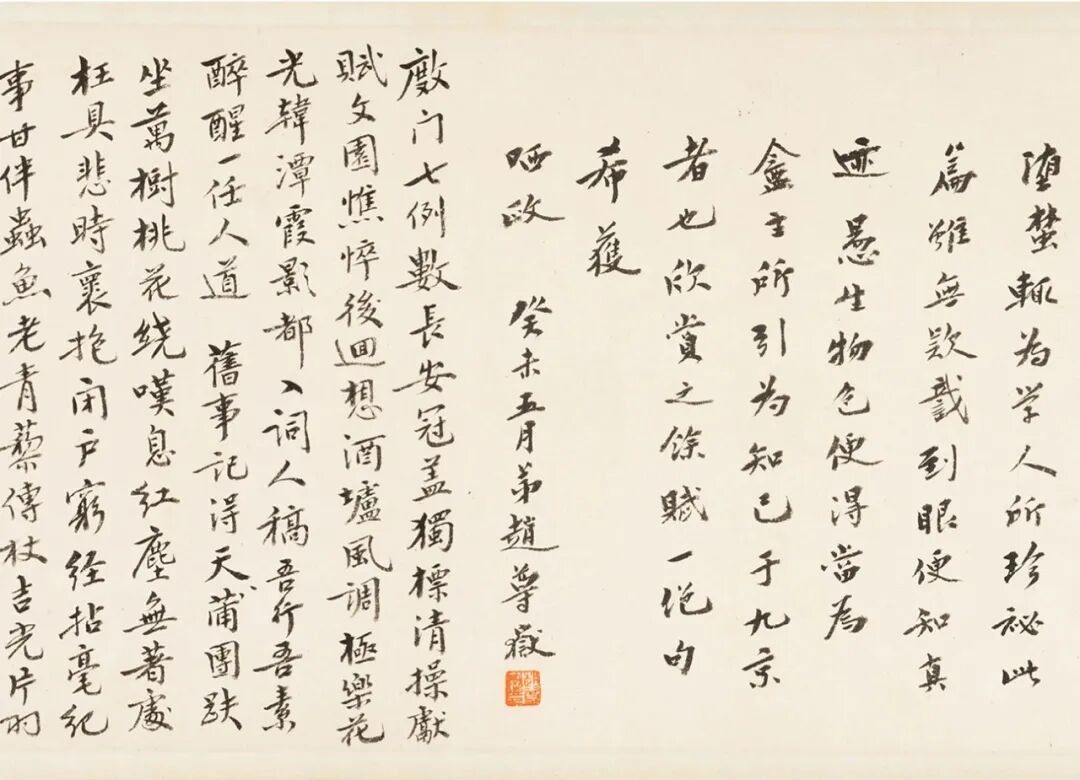 堕蝥輒為学人所珍祕此
篇雖無欵識到眼便知真
迹愚生物色便得當為
盦主所引为知己于九京
者也欣賞之餘賦一绝句
希蒦
哂政 癸未五月弟趙尊嶽
廠门七例數長安冠盖獨標清操獻
賦文園憔悴後迴想酒壚風調極樂花
光韓潭霞影都入词人稿吾行吾素
醉醒一任人道 舊事记得天蒲團趺
坐萬樹桃花绕嘆息红塵無著處
枉具悲時褱抱闭户窮经拈毫纪
事甘伴蟲魚老青藜傳杖吉光片羽